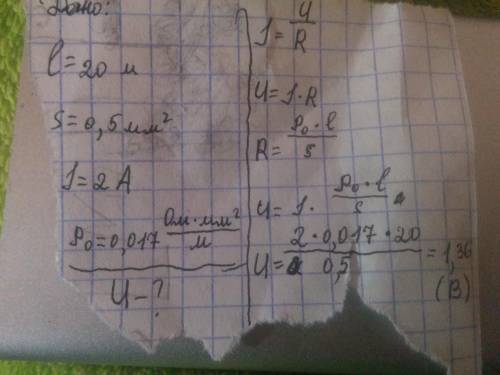 Дано:
l = 20 м
S = 0,5 мм²
I = 2 А
ρ₀ = 0,017 Ом·мм²/м
U - ?
I = U/R
U = I·R
R = ρ₀·l/s
U = I · ρ₀·l/s
U = 2·0,017·20/0,5 = 1,36
(В)